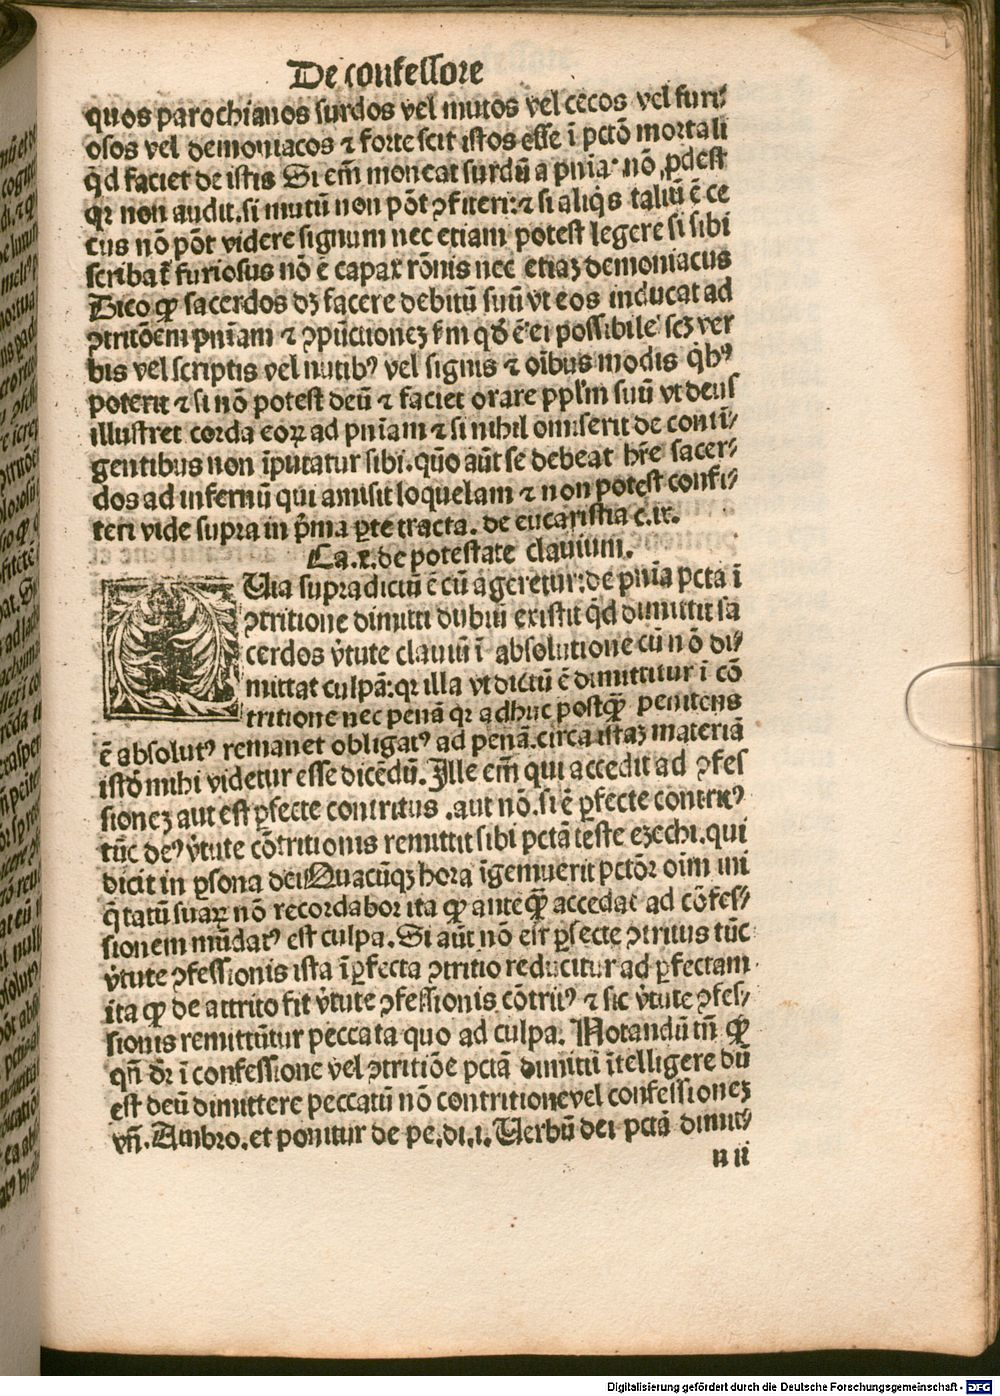 De confessore
quos parochianos surdos vel mutos vel cecos vel furi⸗
osos vel demoniacos ⁊ forte scit istos esse ī pctō mortali
qͥd faciet de istis Si em̄ moneat surdū a pn̄ia· nō ꝓdest
qꝛ non audit.si mutū non pōt ꝯfiteri:⁊ si aliqͥs taliū ē ce
cus nō pōt videre signum nec etiam potest legere si sibi
scribat᷑ furiosus nō ē capax rōnis nec etiaꝫ demoniacus
Dico ꝙ sacerdos dꝫ facere debitū suū vt eos inducat ad
ꝯtritōem pn̄iam ⁊ ꝯpūctioneꝫ ẜm qd̄ ē ei possibile scꝫ ver
bis vel scriptis vel nutibꝰ vel signis ⁊ oībus modis qͥbꝰ
poterit ⁊ si nō potest deū ⁊ faciet orare ppl'm suū vt deus
illustret corda eoꝝ ad pn̄iam ⁊ si nihil omiserit de contī⸗
gentibus non īputatur sibi.quō aūt se debeat hr̄e sacer⸗
dos ad infirmū qui amisit loquelam ⁊ non potest confi⸗
teri vide supra in pͥma ꝑte tracta. de eucaristia c.ix.
Ca.x.de potestate clauium.
Uia supradictū ē cū ageretur:de pn̄ia pctā ī
ꝯtritione dimitti dubiū existit qͥd dimittit sa
cerdos v̓tute clauiū ī absolutione cū nō di⸗
mittat culpā:qꝛ illa vt dictū ē dimittitur ī cō
tritione nec penā qꝛ adhuc postqꝫ̄ penitens
ē absolutꝰ remanet obligatꝰ ad penā.circa istaꝫ materiā
istd̄ mihi videtur esse dicēdū. Ille em̄ qui accedit ad ꝯfes
sioneꝫ aut est ꝑfecte contritus .aut nō.si ē ꝑfecte contritꝰ
tūc deꝰ v̓tute cōtritionis remittit sibi pctā teste ezechi.qui
dicit in ꝑsona dei Quacūqꝫ hora īgemuerit pctōr oīm ini
qͥtatū suaꝝ nō recordabor ita ꝙ anteqꝫ̄ accedat ad cōfes⸗
sionem mūdatꝰ est culpa. Si aūt nō est ꝑfecte ꝯtritus tūc
v̓tute ꝯfessionis ista īꝑfecta ꝯtritio reducitur ad ꝑfectam
ita ꝙ de attrito fit v̓tute ꝯfessionis cōtritꝰ ⁊ sic v̓tute ꝯfes⸗
sionis remittūtur peccata quo ad culpa. Notandū tn̄ ꝙ
qn̄ dr̄ ī confessione vel ꝯtritiōe pctā dimitti ītelligere dū
est deū dimittere peccatū nō contritione vel confessioneꝫ
vn̄. Ambro.et ponitur de pe.di.i. Uerbū dei pctā dimit⸗
n ii
Digitalisierung gefördert durch die Deutsche Forschungsgemeinschaft - DFG